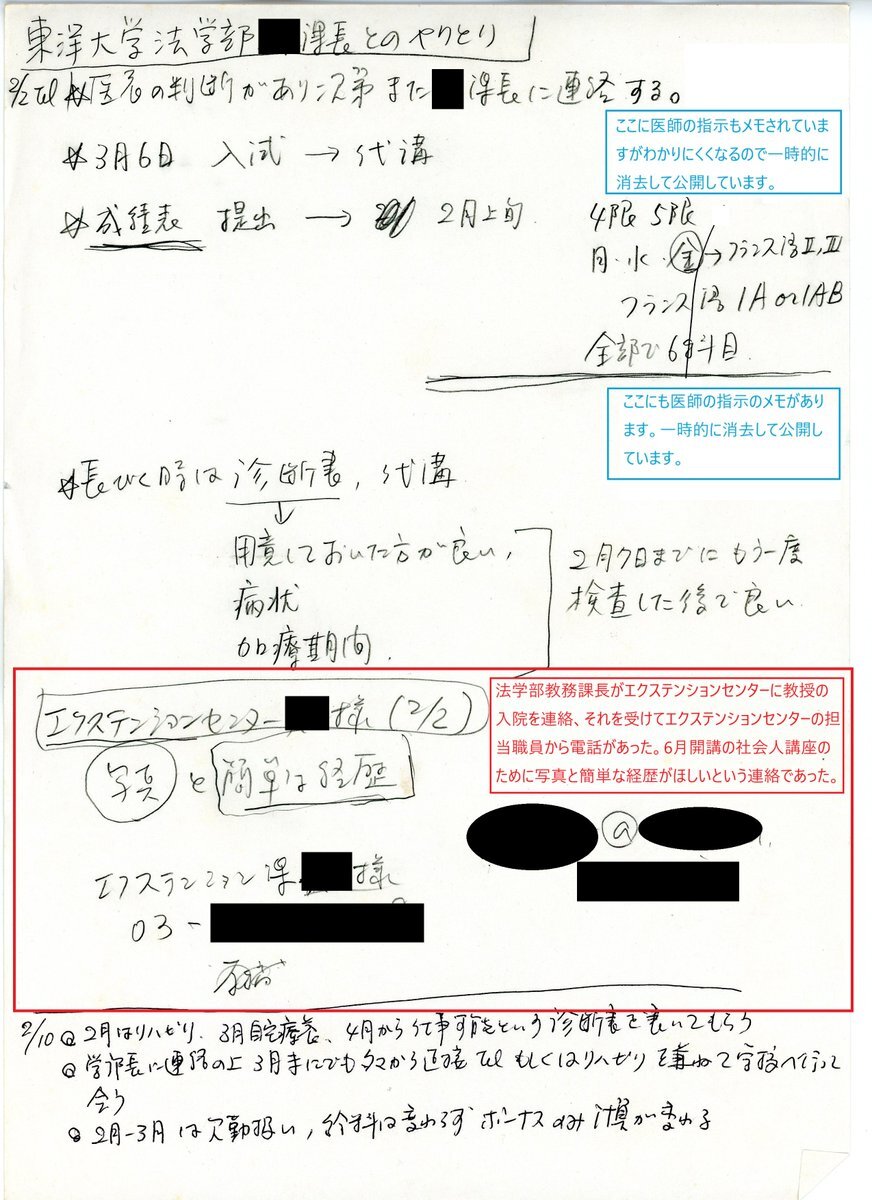 東洋大学法学部 課長とのやりとり
2/2 Tel 医者の判断があり次第また 課長に連絡する。
ここに医師の指示もメモされていま
すがわかりにくくなるので一時的に
消去して公開しています。
3月6日 入試 → 代講
成績表 提出 → 2月上旬
4限 5限
月・水・金→フランス語Ⅱ,Ⅲ
フランス語 1A or 1AB
全部で6科目
ここにも医師の指示のメモがあり
ます。一時的に消去して公開し
ています。
長びく時は診断書, 代講
↓
用意しておいた方が良い,
病状
加療期間.
2月7日までにもう一度
検査した後で良い.
法学部教務課長がエクステンションセンターに教授の
入院を連絡、それを受けてエクステンションセンターの担
当職員から電話があった。6月開講の社会人講座の
ために写真と簡単な経歴がほしいという連絡であった。
エクステンションセンター 様 (2/2)
写真 と 簡単な経歴
@
エクステンション課 様
03-
2/10 2月はリハビリ、3月自宅療養、4月から仕事可能という診断書を書いてもらう
学部長に連絡の上 3月末にでも から直接 Tel もしくはリハビリを兼ねて学校へ行って
会う
2月-3月は欠勤扱い, 給料は変わらず ボーナスのみ 変わる